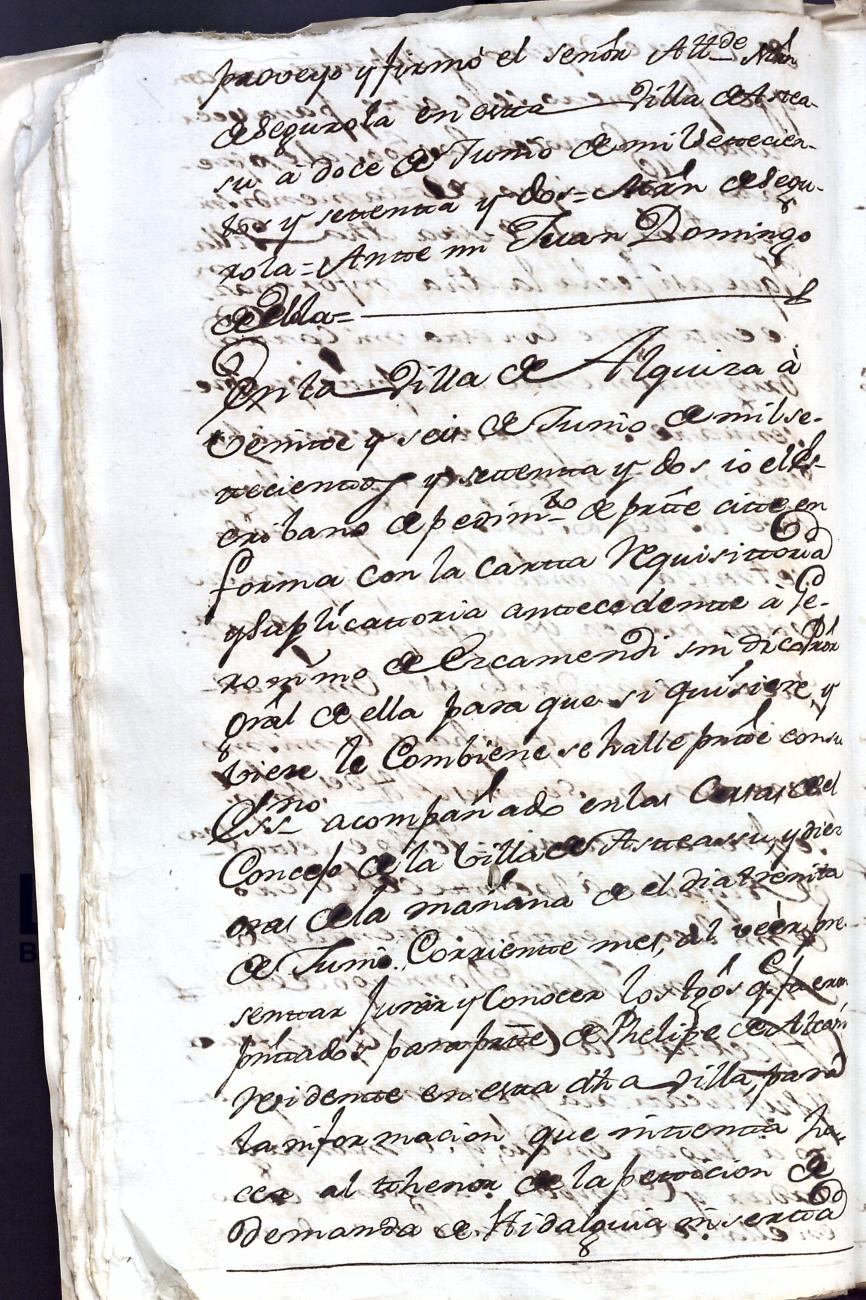 proveyo y firmó el señor Altde Mrn
de Segurola en esta Villa de Astea-
su à doce de Junio de mil settecien-
tos y settentta y dos = Mrn de Segu-
rola = Antte mi Juan Domingo
de Ella =
En la Villa de Alquiza à
veintte y seis de Junio de mil se-
ttecienttos y settentta y dos io el Es-
cribano de pedimto de partte citte en
forma con la cartta Requisittoria
y Suplicattoria anttecedentte à Ge-
ronimo de Ercamendi sindico Pror
Gral de ella para que si quisiere, y
viere le Combiene se halle prte con su
Essno acompañado en las Casas del
Concejo de la Villa de Asteassu, y diez
oras de la mañana de el dia treinta
de Junio Corrientte mes, al veer, pre-
senttar Jurar y Conocer los tgos q fueren
pnttados para partte de Phelipe de
Residentte en esta dha Villa, para
la informacion que intentta ha-
cer al thenor de la peticion de
Demanda de Hidalguia inserttad